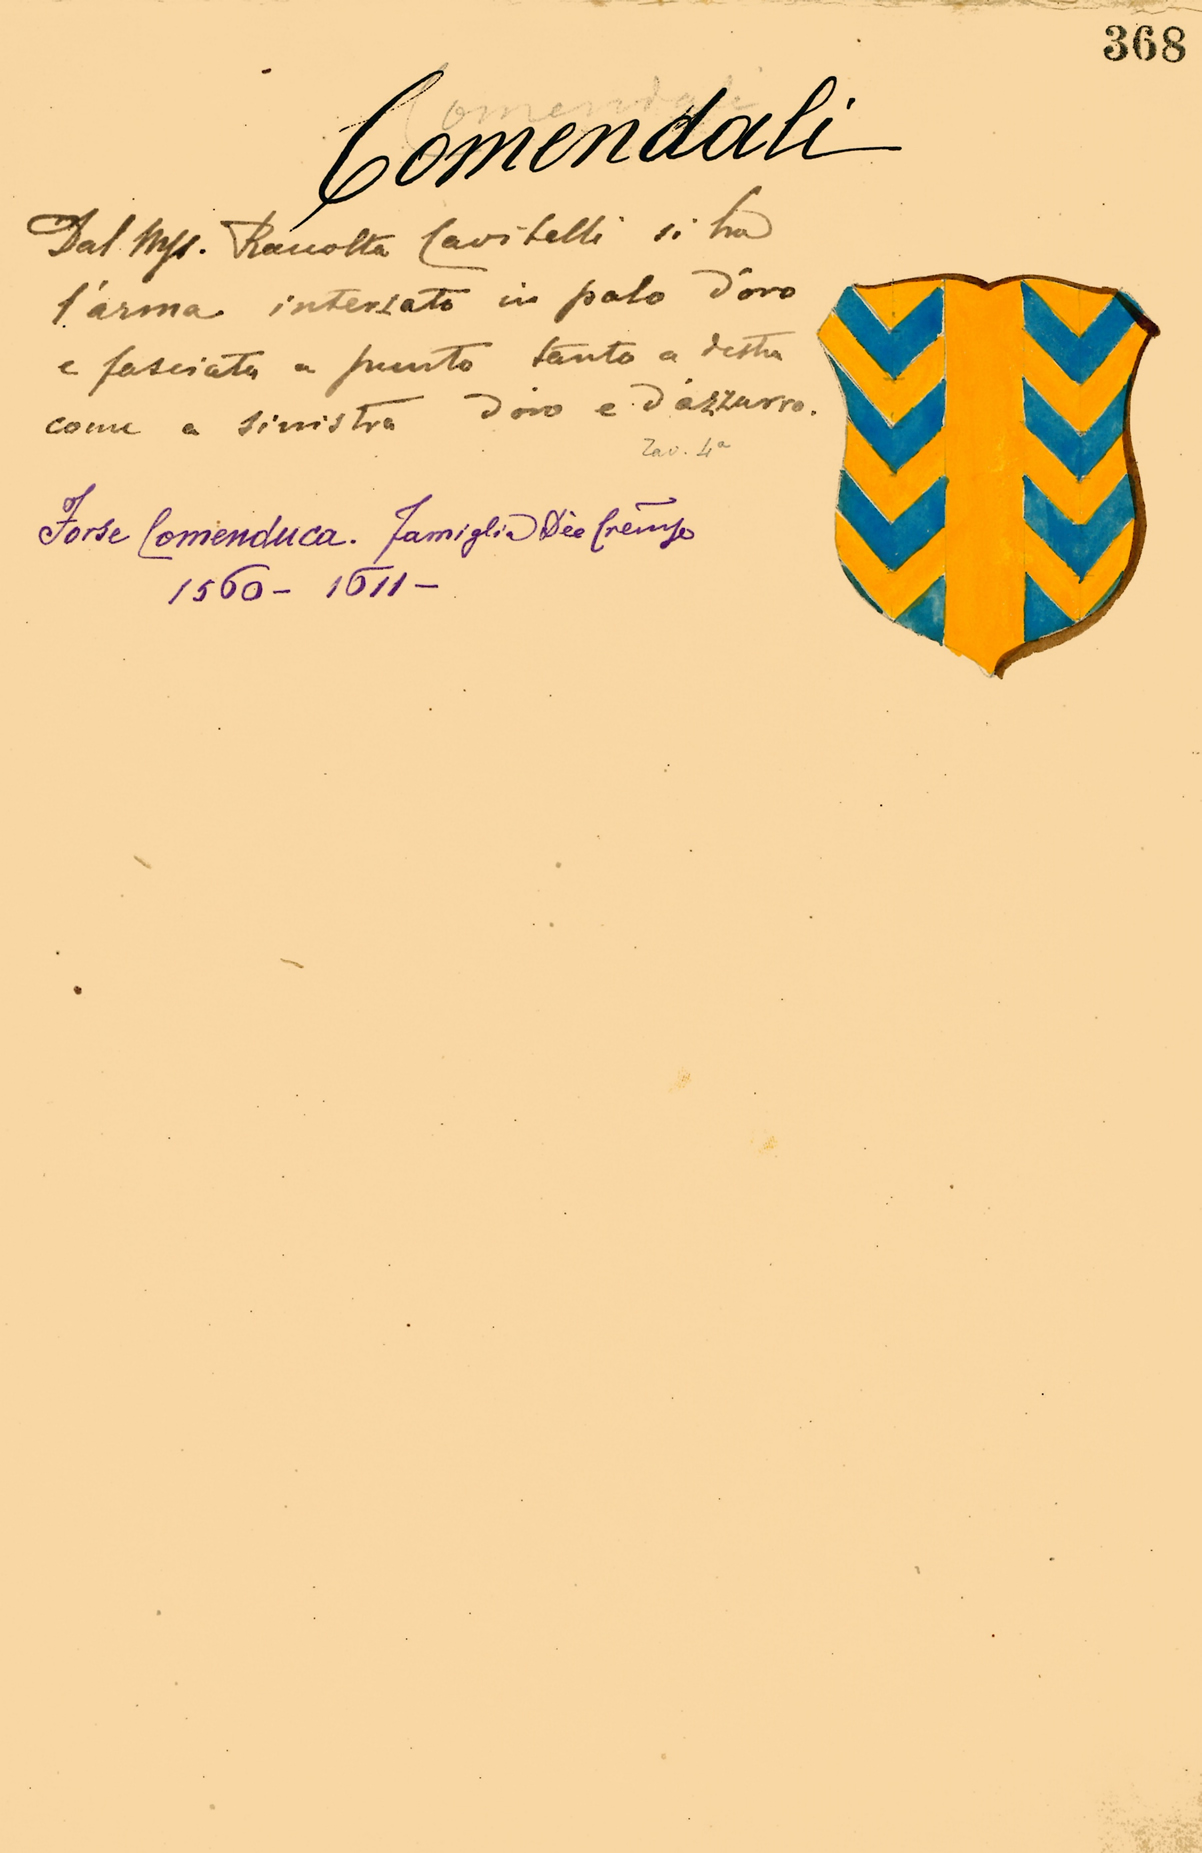 368
Comendali
Comendali
Dal Mss. Raccolta Cavitelli si ha
l'arma interzato in palo d'oro
e fasciata a punto tanto a destra
come a sinistra d'oro e d'azzurro.
Tav. 4ª
Forse Comenduca. Famiglia Dec
1560 - 1611 -